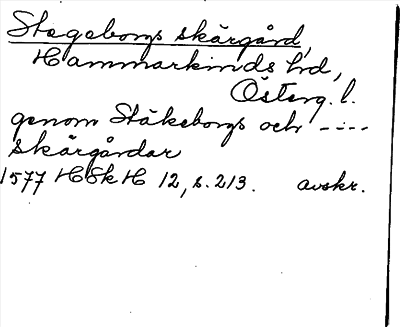 Stegeborgs skärgård,
Hammarkinds hd,
Österg. l.
genom Stäkeborgs och -----
skärgårdar
1577 HSkH 12, s. 213. avskr.